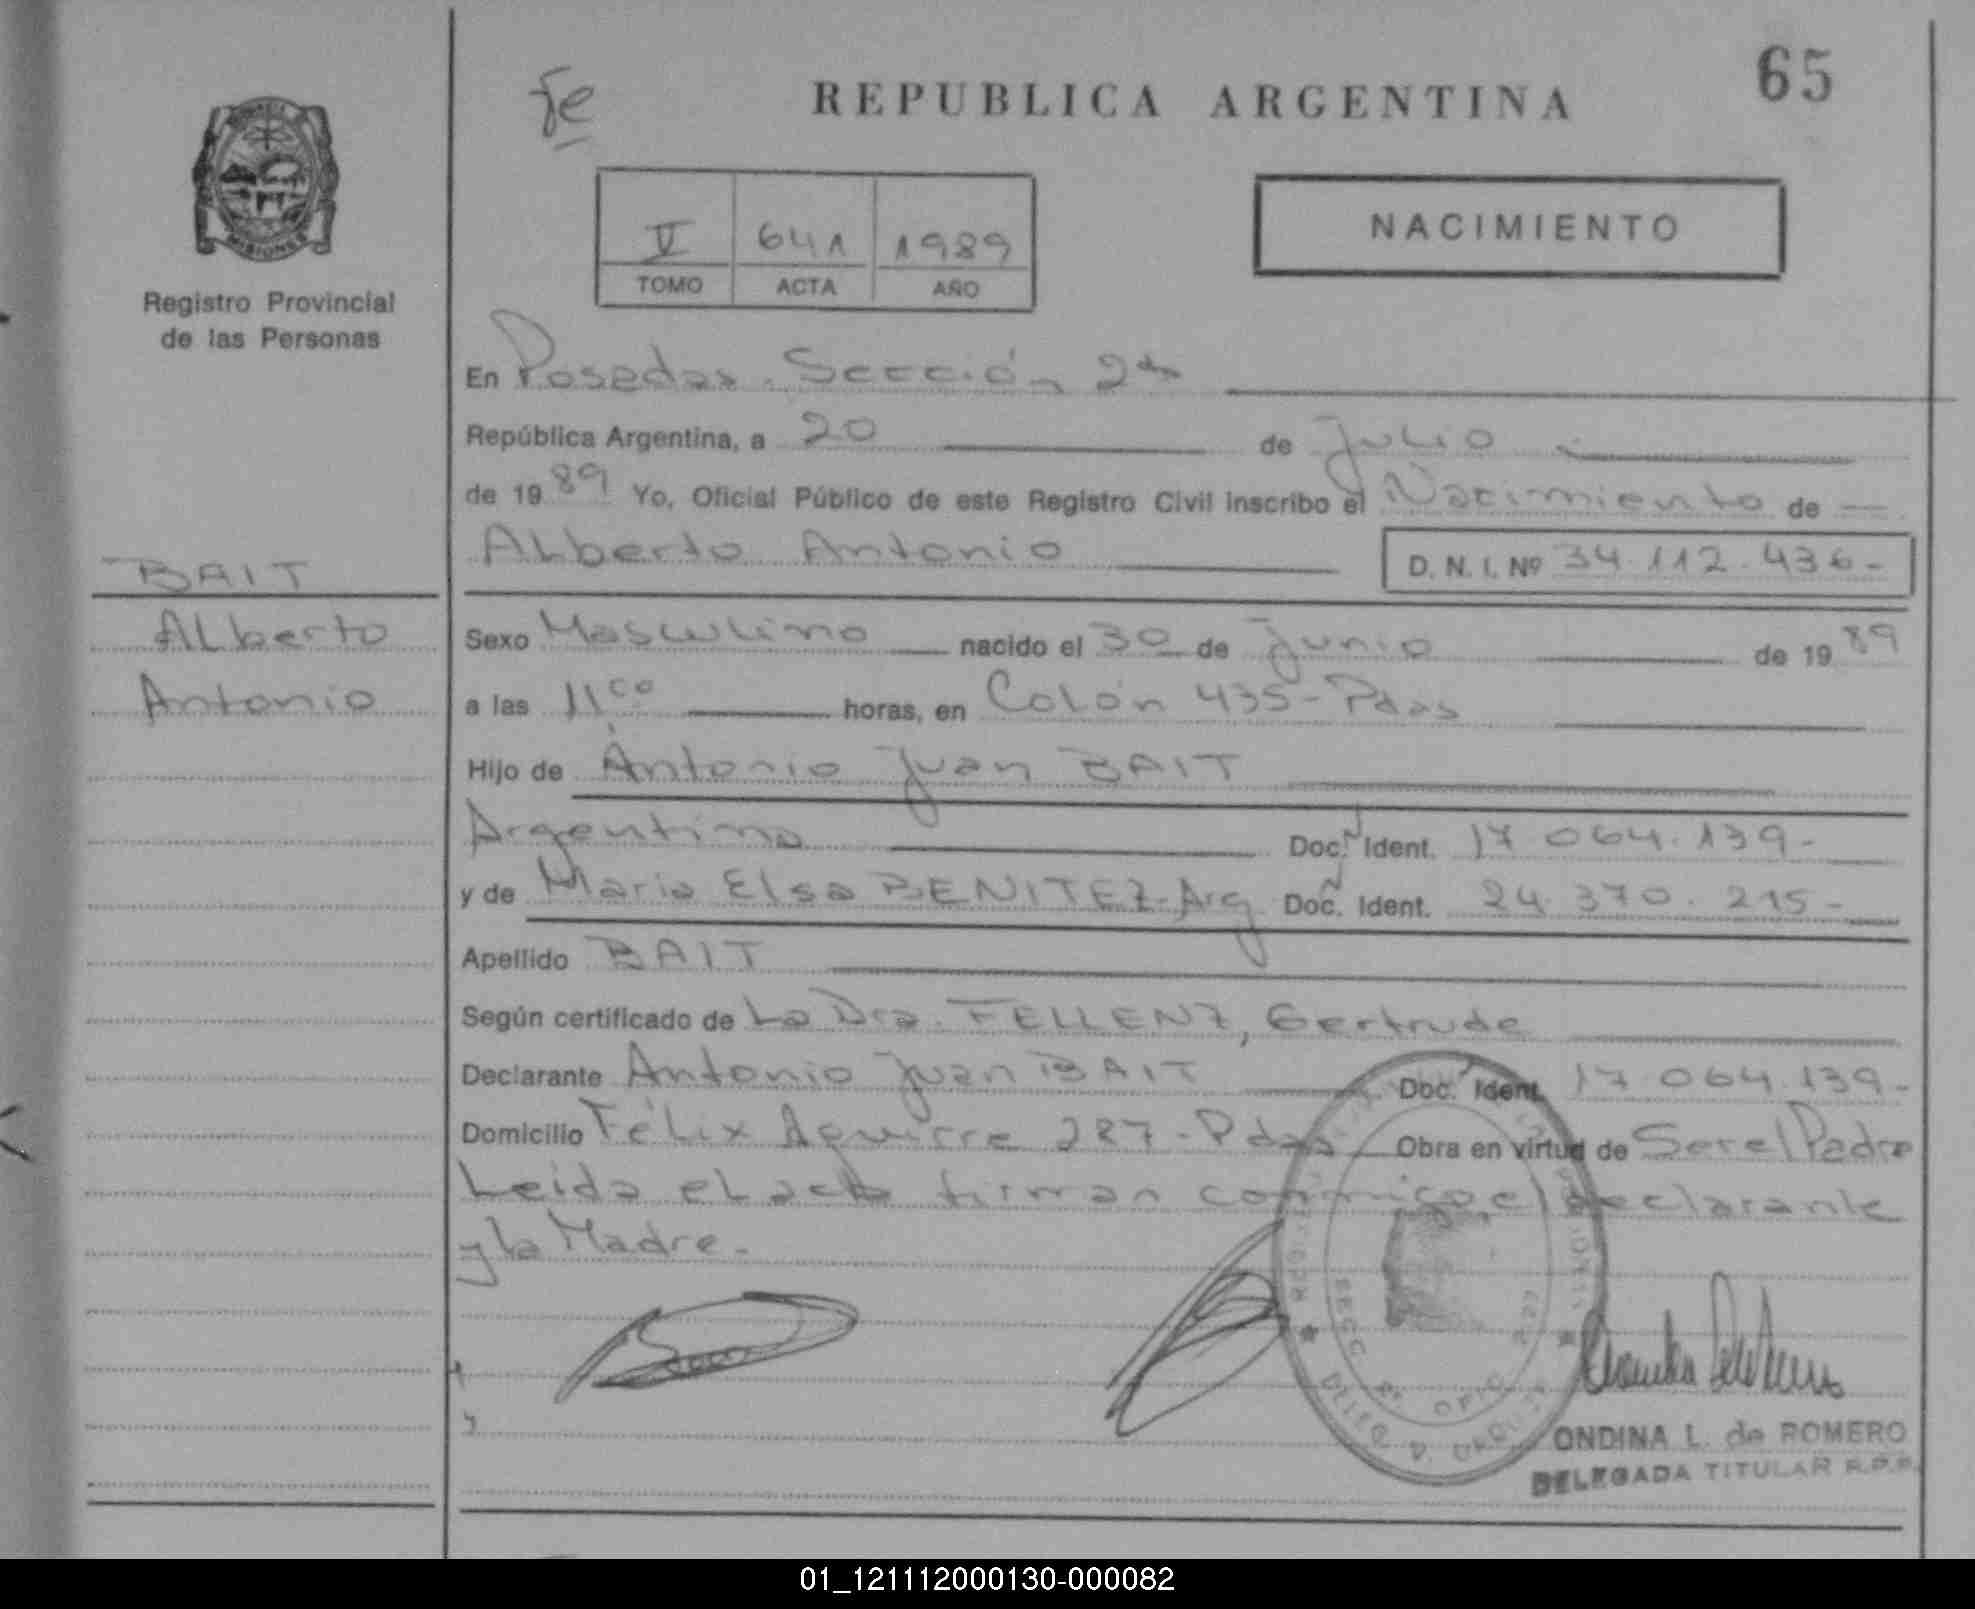 65
fe
REPUBLICA ARGENTINA
MISIONES
Registro Provincial
de las Personas
V 641 1989
TOMO ACTA AÑO
NACIMIENTO
En Posadas. Sección 2da
República Argentina, a 20 de Julio
de 1989 Yo, Oficial Público de este Registro Civil inscribo el Nacimiento de
Alberto Antonio D. N. I. Nº 34.112.436-
BAIT
Alberto
Antonio
Sexo Masculino nacido el 30 de Junio de 1989
a las 11:00 horas, en Colón 435-Pdas
Hijo de Antonio Juan BAIT
Argentino Doc. Ident. 17.064.139-
y de Maria Elsa BENITEZ-Arg Doc. Ident. 24.370.215-
Apellido BAIT
Según certificado de La Dra. FELLENZ, Gertrude
Declarante Antonio Juan BAIT Doc. Ident. 17.064.139-
Domicilio Félix Aguirre 287-Pdas Obra en virtud de Ser el Padre
Leida el acta firman conmigo, el declarante
y la Madre.
ONDINA L. de ROMERO
DELEGADA TITULAR R.P.P.
01_121112000130-000082